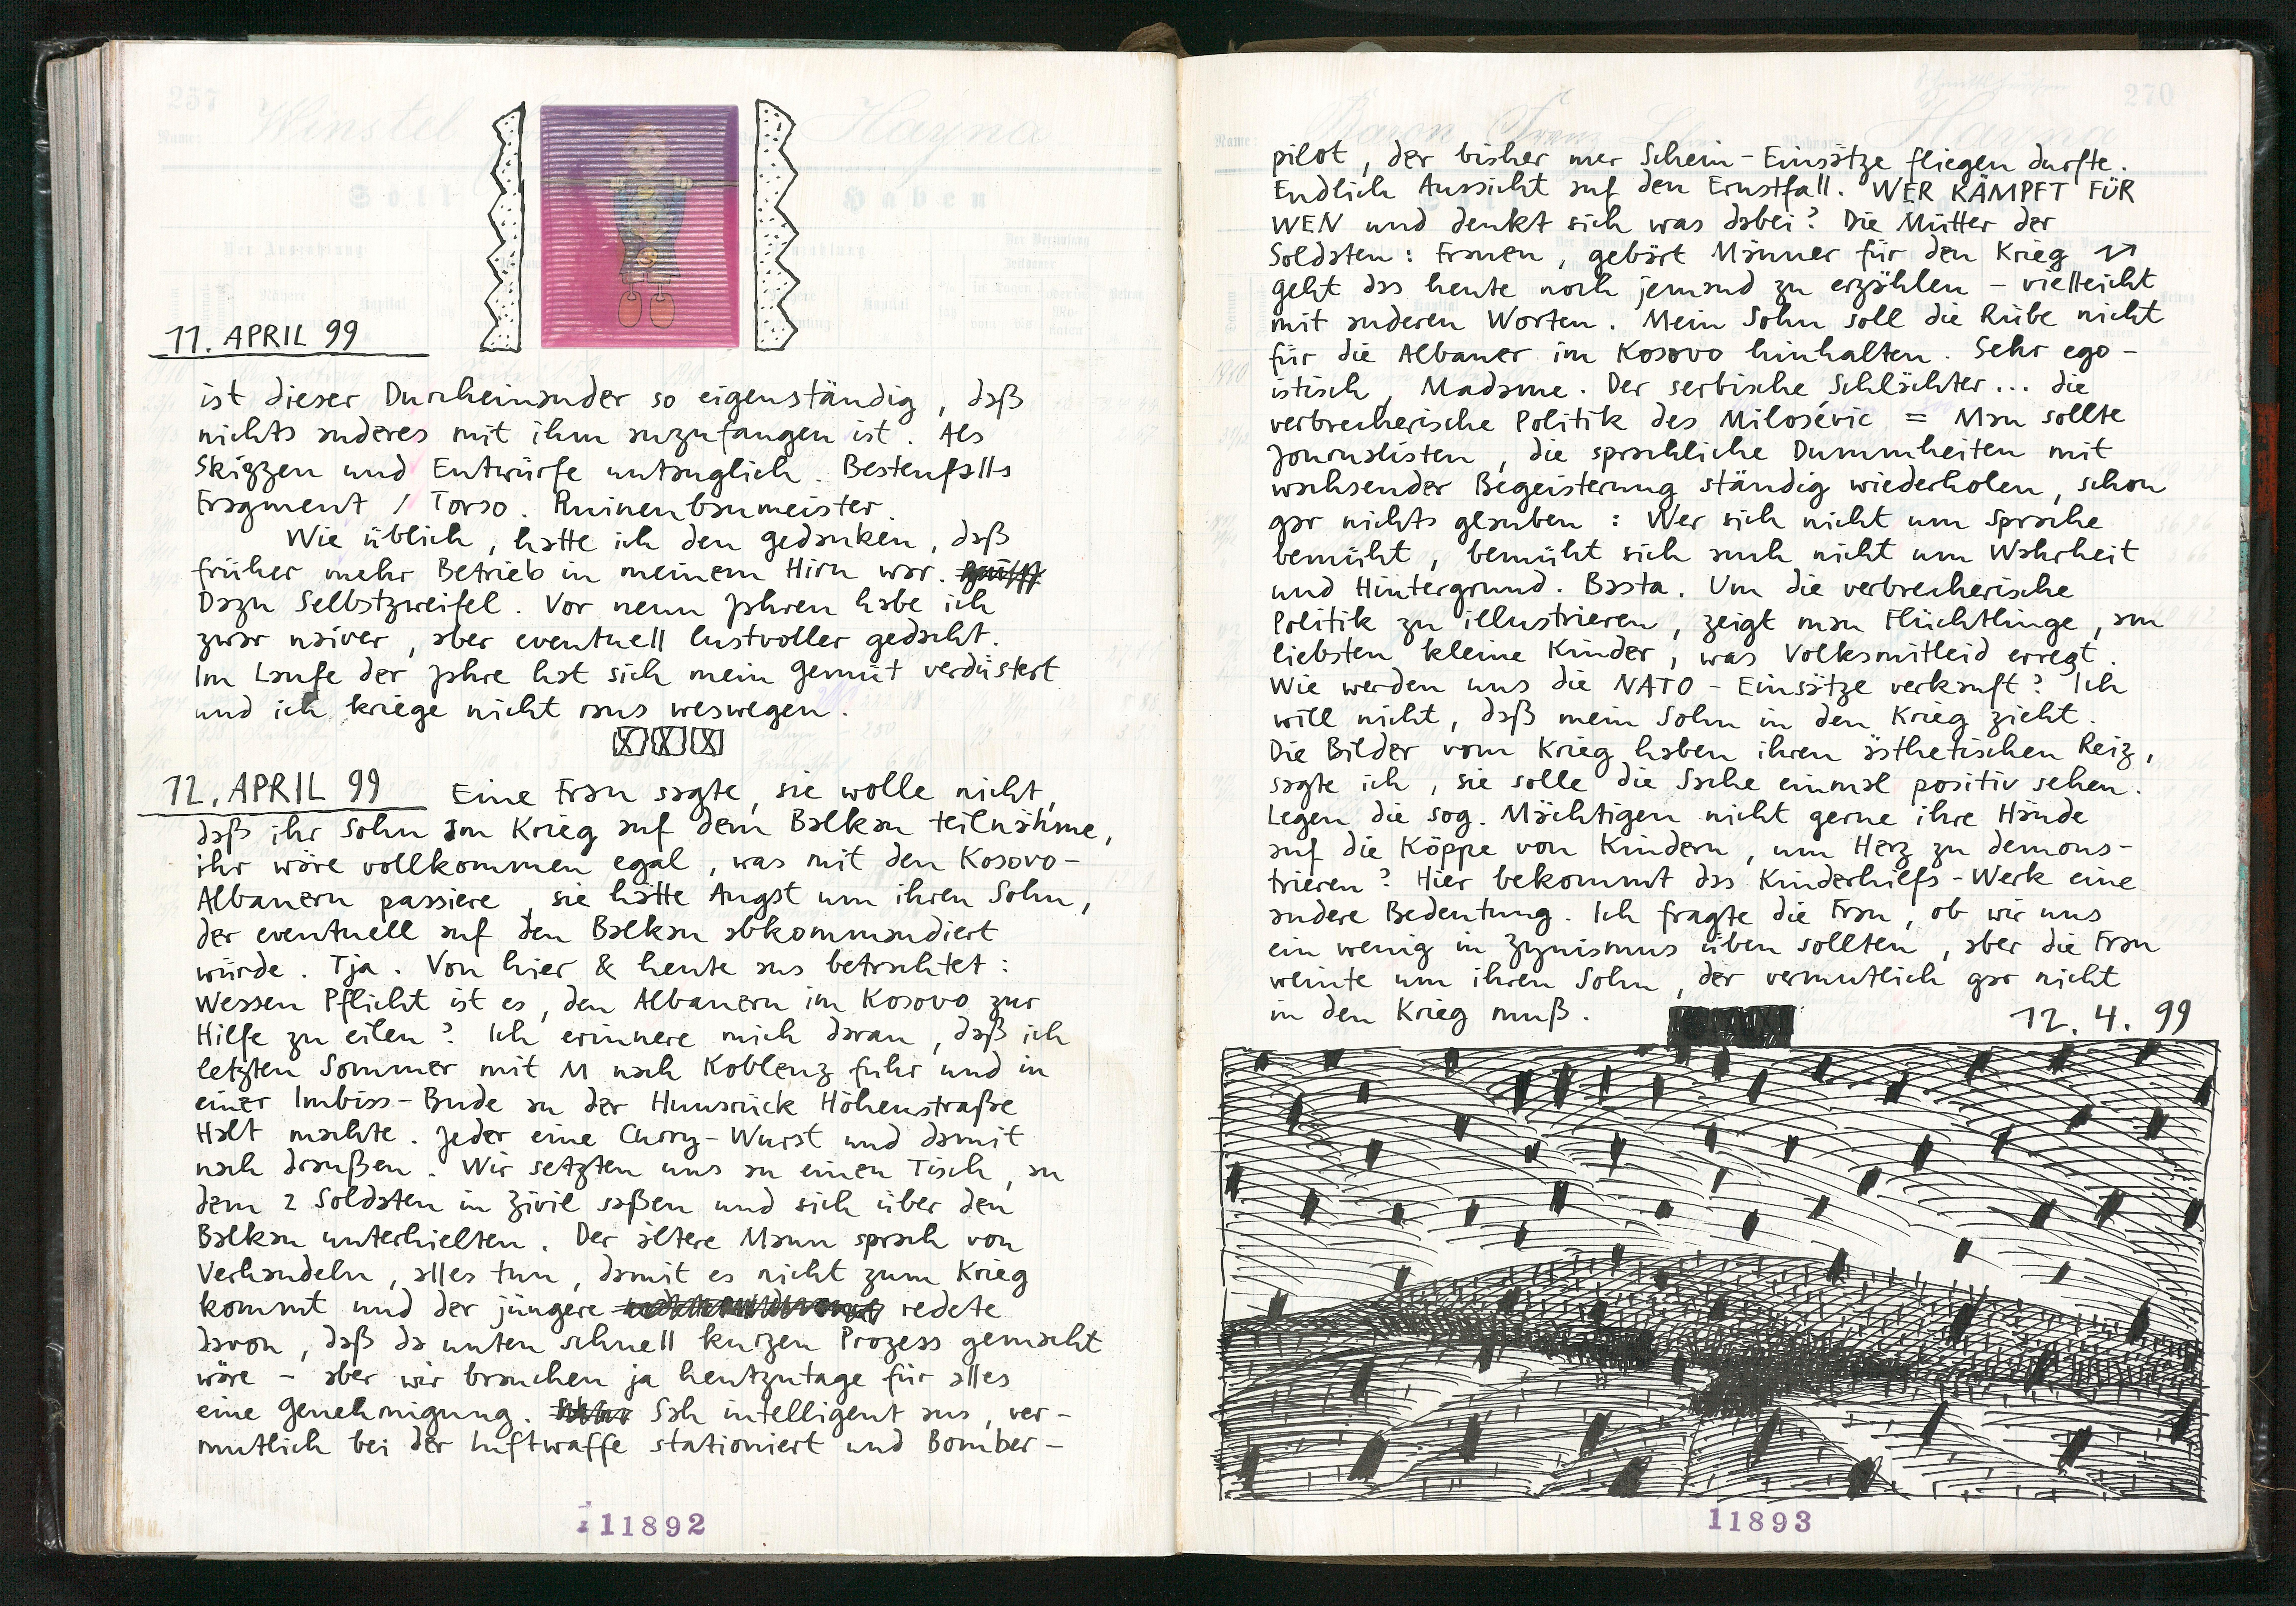 257
Winstel
Hayna
Name:
Soll
Haben
11. APRIL 99
ist dieser Durcheinander so eigenständig, daß
nichts anderes mit ihm anzufangen ist. Als
Skizzen und Entwürfe untauglich. Bestenfalls
Fragment / Torso. Ruinenbaumeister.
Wie üblich, hatte ich den Gedanken, daß
früher mehr Betrieb in meinem Hirn war.
Dazu Selbstzweifel. Vor neun Jahren habe ich
zwar naiver, aber eventuell lustvoller gedacht.
Im Laufe der Jahre hat sich mein Gemüt verdüstert
und ich kriege nicht raus weswegen.
12. APRIL 99 Eine Frau sagte, sie wolle nicht,
daß ihr Sohn am Krieg auf dem Balkan teilnähme,
ihr wäre vollkommen egal, was mit den Kosovo-
Albanern passiere, sie hätte Angst um ihren Sohn,
der eventuell auf den Balkan abkommandiert
würde. Tja. Von hier & heute aus betrachtet:
Wessen Pflicht ist es, den Albanern im Kosovo zur
Hilfe zu eilen? Ich erinnere mich daran, daß ich
letzten Sommer mit M nach Koblenz fuhr und in
einer Imbiss-Bude an der Hunsrück Höhenstraße
Halt machte. Jeder eine Curry-Wurst und damit
nach draußen. Wir setzten uns an einen Tisch, an
dem 2 Soldaten in Zivil saßen und sich über den
Balkan unterhielten. Der ältere Mann sprach von
Verhandeln, alles tun, damit es nicht zum Krieg
kommt und der jüngere redete
davon, daß da unten schnell kurzen Prozess gemacht
wäre – aber wir brauchen ja heutzutage für alles
eine Genehmigung. Sah intelligent aus, ver-
mutlich bei der Luftwaffe stationiert und Bomber-
11892
270
Name:
Baron Franz
Hayna
pilot, der bisher nur Schein-Einsätze fliegen durfte.
Endlich Aussicht auf den Ernstfall. WER KÄMPFT FÜR
WEN und denkt sich was dabei? Die Mütter der
Soldaten: Frauen, gebärt Männer für den Krieg
geht das heute noch jemand zu erzählen – vielleicht
mit anderen Worten. Mein Sohn soll die Rübe nicht
für die Albaner im Kosovo hinhalten. Sehr ego-
istisch, Madame. Der serbische Schlächter... die
verbrecherische Politik des Milosévic = Man sollte
Journalisten, die sprachliche Dummheiten mit
wachsender Begeisterung ständig wiederholen, schon
gar nichts glauben: Wer sich nicht um Sprache
bemüht, bemüht sich auch nicht um Wahrheit
und Hintergrund. Basta. Um die verbrecherische
Politik zu illustrieren, zeigt man Flüchtlinge, am
liebsten kleine Kinder, was Volksmitleid erregt.
Wie werden uns die NATO-Einsätze verkauft? Ich
will nicht, daß mein Sohn in den Krieg zieht.
Die Bilder vom Krieg haben ihren ästhetischen Reiz,
sagte ich, sie solle die Sache einmal positiv sehen.
Legen die sog. Mächtigen nicht gerne ihre Hände
auf die Köppe von Kindern, um Herz zu demons-
trieren? Hier bekommt das Kinderhilfs-Werk eine
andere Bedeutung. Ich fragte die Frau, ob wir uns
ein wenig in Zynismus üben sollten, aber die Frau
weinte um ihren Sohn, der vermutlich gar nicht
in den Krieg muß.
12. 4. 99
11893